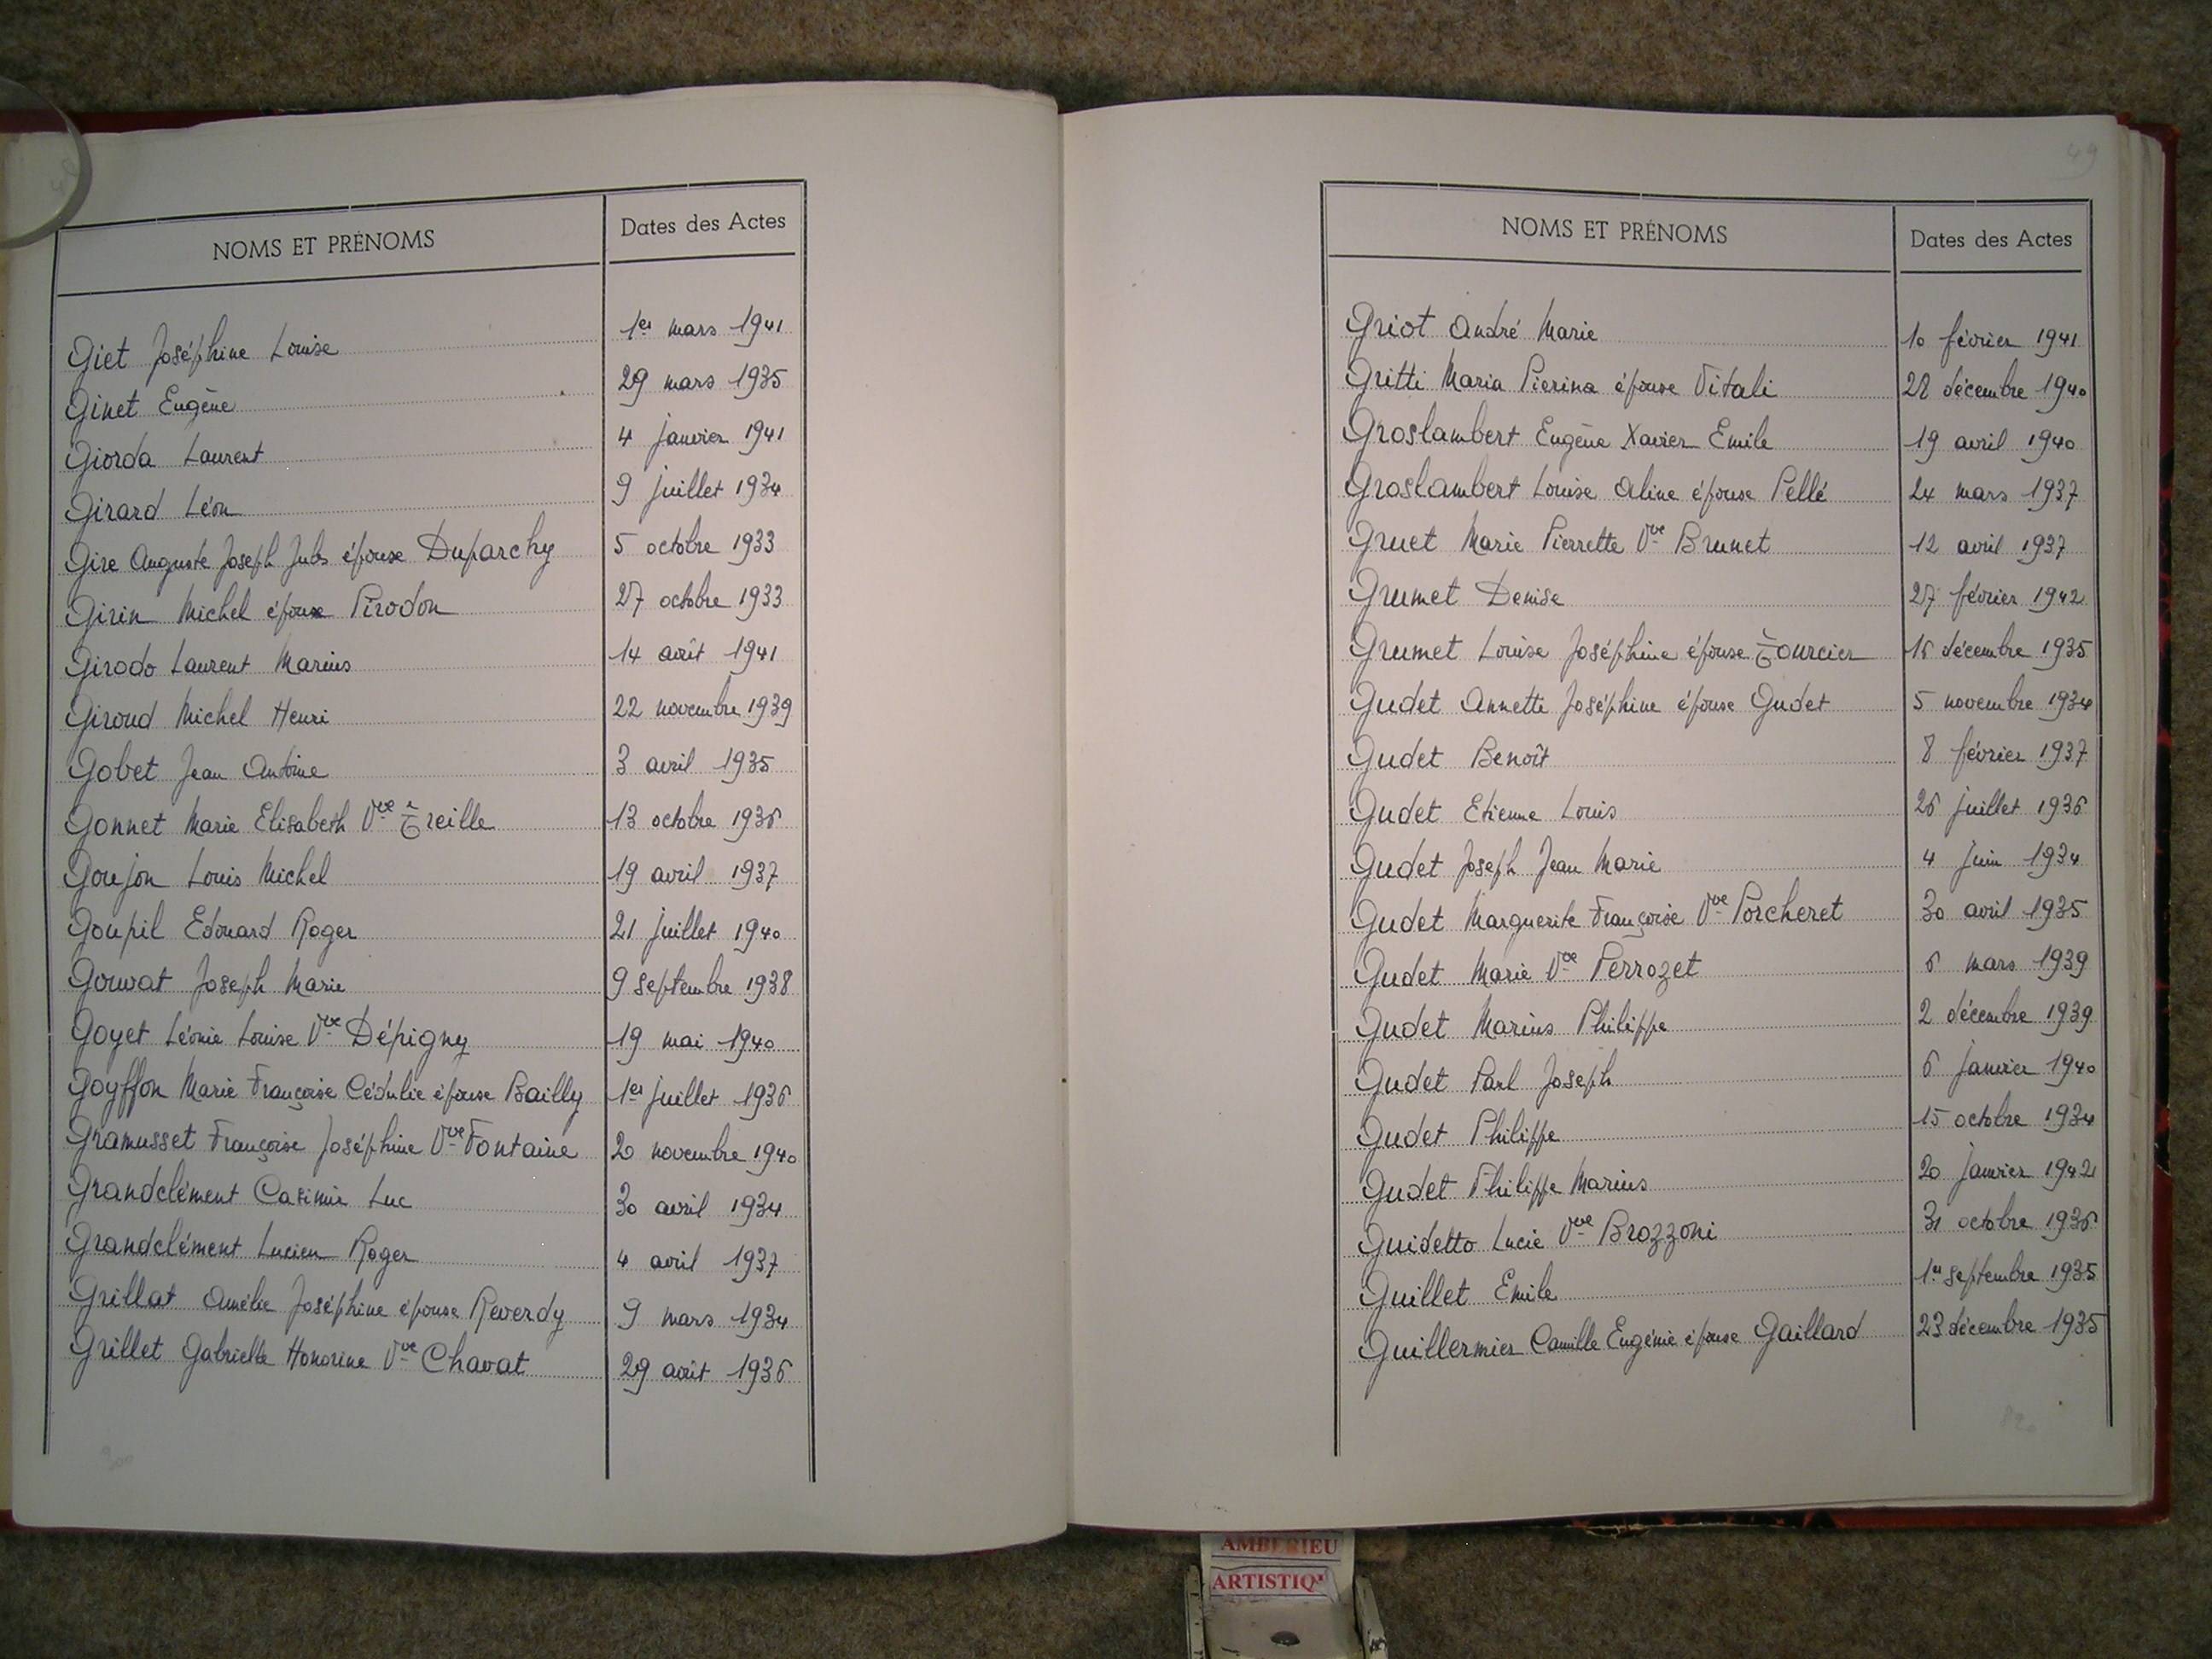 NOMS ET PRÉNOMS Dates des Actes
Giet Joséphine Louise 1er mars 1941
Ginet Eugène 29 mars 1935
Giorda Laurent 4 janvier 1941
Girard Léon 9 juillet 1934
Gire Auguste Joseph Jules époux Duparchy 5 octobre 1933
Girin Michel époux Pirodon 27 octobre 1933
Girodo Laurent Marius 14 août 1941
Giroud Michel Henri 22 novembre 1939
Gobet Jean Antoine 3 avril 1935
Gonnet Marie Elisabeth Vve Treille 13 octobre 1936
Goujon Louis Michel 19 avril 1937
Goupil Edouard Roger 21 juillet 1940
Gouvat Joseph Marie 9 septembre 1938
Goyet Léonie Louise Vve Dépigny 19 mai 1940
Goyffon Marie Françoise Cédulie épouse Bailly 1er juillet 1936
Gramusset Françoise Joséphine Vve Fontaine 20 novembre 1940
Grandclément Casimir Luc 30 avril 1934
Grandclément Lucien Roger 4 avril 1937
Grillat Amélie Joséphine épouse Reverdy 9 mars 1934
Grillet Gabrielle Honorine Vve Chavat 29 août 1936
300
49
NOMS ET PRÉNOMS Dates des Actes
Griot André Marie 10 février 1941
Gritti Maria Pierina épouse Vitali 28 décembre 1940
Groslambert Eugène Xavier Emile 19 avril 1940
Groslambert Louise Aline épouse Pellé 24 mars 1937
Gruet Marie Pierrette Vve Brunet 12 avril 1937
Grumet Denise 27 février 1942
Grumet Louise Joséphine épouse Tourcier 16 décembre 1935
Gudet Annette Joséphine épouse Gudet 5 novembre 1934
Gudet Benoît 8 février 1937
Gudet Etienne Louis 26 juillet 1936
Gudet Joseph Jean Marie 4 Juin 1934
Gudet Marguerite Françoise Vve Porcheret 30 avril 1935
Gudet Marie Vve Perrozet 6 mars 1939
Gudet Marius Philippe 2 décembre 1939
Gudet Paul Joseph 6 janvier 1940
Gudet Philippe 15 octobre 1934
Gudet Philippe Marius 20 janvier 1942
Guidetto Lucie Vve Brozzoni 31 octobre 1936
Guillet Emile 1er septembre 1935
Guillermier Camille Eugénie épouse Gaillard 23 décembre 1935
AMBERIEU
ARTISTIQ